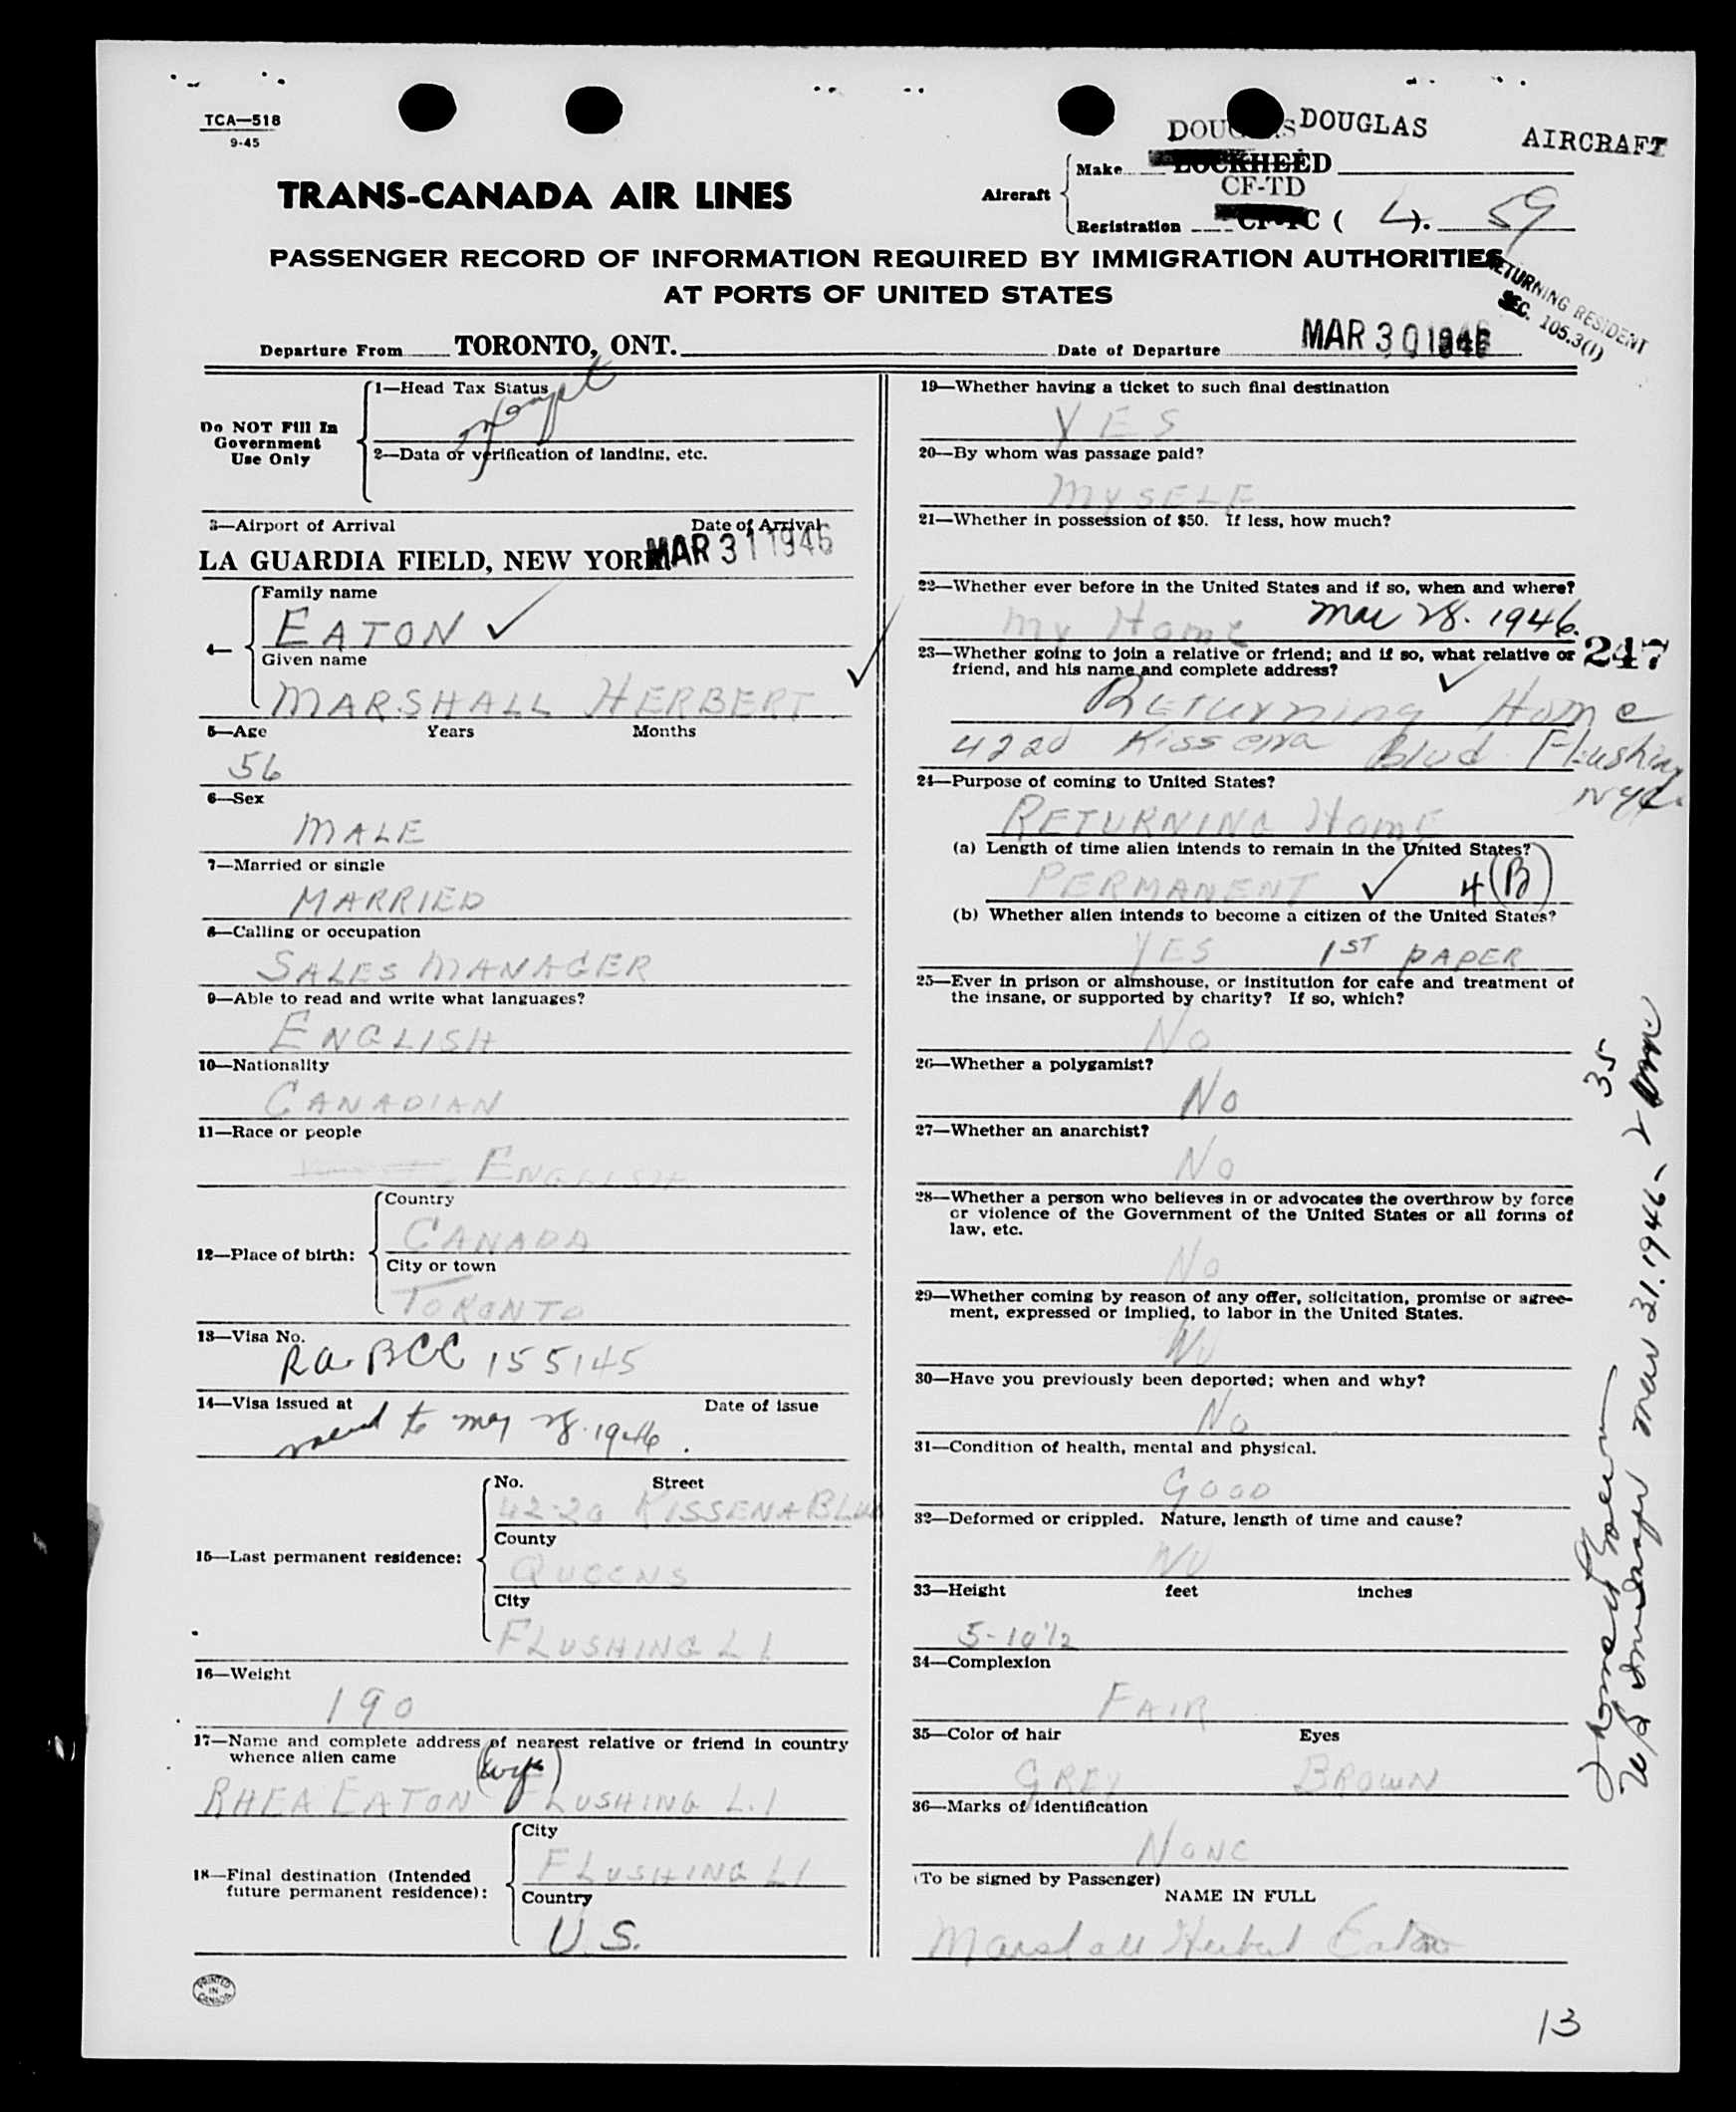 TCA—518
9-45
DOUGLAS DOUGLAS AIRCRAFT
TRANS-CANADA AIR LINES
Aircraft
Make LOCKHEED
CF-TD
Registration CF-TC ( L ). 59
PASSENGER RECORD OF INFORMATION REQUIRED BY IMMIGRATION AUTHORITIES
AT PORTS OF UNITED STATES
RETURNING RESIDENT
SEC. 105.3(1)
Departure From TORONTO, ONT. Date of Departure MAR 30 1946
Do NOT Fill In
Government
Use Only
1—Head Tax Status
2—Data or verification of landing, etc.
3—Airport of Arrival Date of Arrival
LA GUARDIA FIELD, NEW YORK MAR 31 1946
4—
Family name
EATON ✓
Given name
MARSHALL HERBERT ✓
5—Age Years Months
56
6—Sex
MALE
7—Married or single
MARRIED
8—Calling or occupation
SALES MANAGER
9—Able to read and write what languages?
ENGLISH
10—Nationality
CANADIAN
11—Race or people
ENGLISH
12—Place of birth:
Country
CANADA
City or town
TORONTO
13—Visa No.
RA. BCC 155145
14—Visa issued at Date of issue
valid to May 28. 1946.
15—Last permanent residence:
No. Street
42-20 KISSENA BLVD
County
QUEENS
City
FLUSHING L I
16—Weight
190
17—Name and complete address of nearest relative or friend in country
whence alien came
(wife)
RHEA EATON FLUSHING L.I
18—Final destination (Intended
future permanent residence):
City
FLUSHING L I
Country
U.S.
PRINTED
IN
CANADA
19—Whether having a ticket to such final destination
YES
20—By whom was passage paid?
MYSELF
21—Whether in possession of $50. If less, how much?
22—Whether ever before in the United States and if so, when and where?
My Home Mar 28. 1946.
23—Whether going to join a relative or friend; and if so, what relative or
friend, and his name and complete address?
247
Returning Home ✓
4220 Kissena Blvd Flushing
NYC.
24—Purpose of coming to United States?
RETURNING HOME
(a) Length of time alien intends to remain in the United States?
PERMANENT ✓ 4(B)
(b) Whether alien intends to become a citizen of the United States?
YES 1ST PAPER
25—Ever in prison or almshouse, or institution for care and treatment of
the insane, or supported by charity? If so, which?
No
26—Whether a polygamist?
No
27—Whether an anarchist?
No
28—Whether a person who believes in or advocates the overthrow by force
or violence of the Government of the United States or all forms of
law, etc.
No
29—Whether coming by reason of any offer, solicitation, promise or agree-
ment, expressed or implied, to labor in the United States.
No
30—Have you previously been deported; when and why?
No
31—Condition of health, mental and physical.
GOOD
32—Deformed or crippled. Nature, length of time and cause?
NO
33—Height feet inches
5-10 1/2
34—Complexion
FAIR
35—Color of hair Eyes
GREY BROWN
36—Marks of identification
NONE
(To be signed by Passenger)
NAME IN FULL
Marshall Herbert Eaton
Mar 31. 1946–
35
13